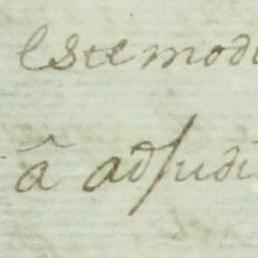 este modo
â adjudi